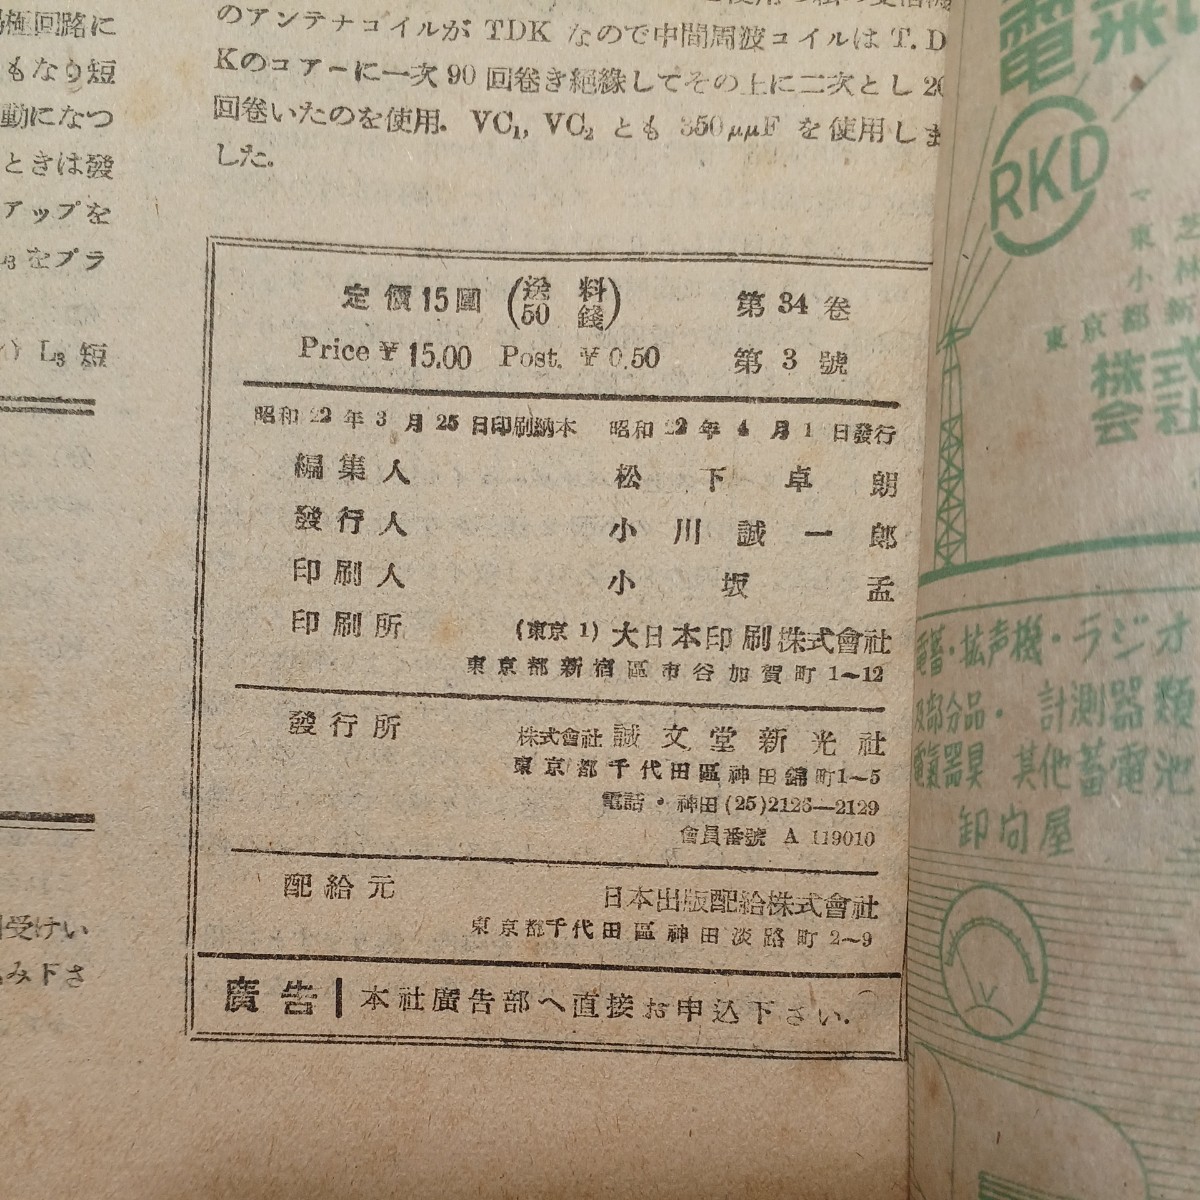 陽極回路に
もなり短
動になつ
ときは發
アップを
L₃ をプラ
L₃ 短
のアンテナコイルが TDK なので中間周波コイルは T.D
Kのコアーに一次 90 回巻き絕緣してその上に二次とし 20
回巻いたのを使用. VC₁, VC₂ とも 350μμF を使用しま
した.
定價15圓 (送料 50錢) 第34巻
Price ¥15.00 Post. ¥0.50 第3號
昭和22年3月25日印刷納本 昭和22年4月1日發行
編集人 松下卓朗
發行人 小川誠一郎
印刷人 小坂孟
印刷所 (東京1) 大日本印刷株式會社
東京都新宿區市谷加賀町1~12
發行所 株式會社 誠文堂新光社
東京都千代田區神田錦町1~5
電話・神田(25)2126—2129
會員番號 A 119010
配給元 日本出版配給株式會社
東京都千代田區神田淡路町2~9
廣告 本社廣告部へ直接お申込下さい.
受けい
み下さ
電
RKD
マ
東 芝
小 林
東京都新
株式
会社
電蓄・拡声機・ラジオ
及部分品・計測器類
電氣器具 其他蓄電池
卸問屋